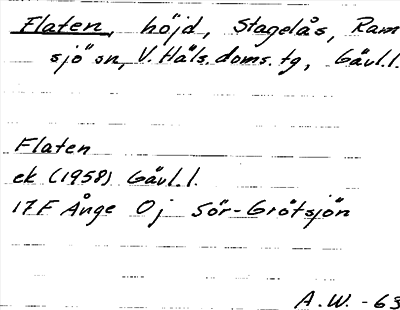 Flaten, höjd, Stagelås, Ram
sjö sn, V. Häls. doms. tg, Gävl.l.
Flaten
ek (1958) Gävl.l.
17F Ånge 0j Sör-Grötsjön
A.W. - 63